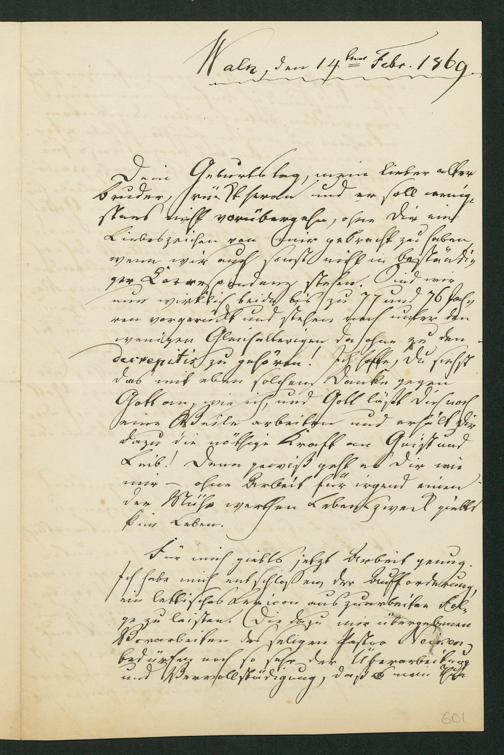 Walk, den 14ten Febr. 1869.
Dein Geburtstag, mein lieber alter
Bruder, rückt heran und er soll wenig-
stens nicht vorübergehn, ohne Dir ein
Liebeszeichen von mir gebracht zu haben,
wenn wir auch sonst nicht in beständi-
ger Correspondenz stehen. Sind wir
nun wirklich beide bis zu 77 und 76 Jah-
ren vorgerückt und stehen noch unter den
wenigen Gleichalterigen da ohne zu den
decrepitis zu gehören! Ich hoffe, Du siehst
das mit eben solchem Danke gegen
Gott an, wie ich, und Gott läßt Dich noch
eine Weile arbeiten und erhält Dir
dazu die nöthige Kraft an Geist und
Leib! Denn gewiß geht es Dir wie
mir – ohne Arbeit für irgend einen
der Mühe werthen Lebenszweck giebts
kein Leben.
Für mich giebts jetzt Arbeit genug.
Ich habe mich entschlossen, der Aufforderung,
ein lettisches Lexicon auszuarbeiten Fol-
ge zu leisten. Die dazu mir übergebenen
Vorarbeiten des seligen Pastor
bedürfen noch so sehr der Überarbeitung
und Vervollständigung, daß
601